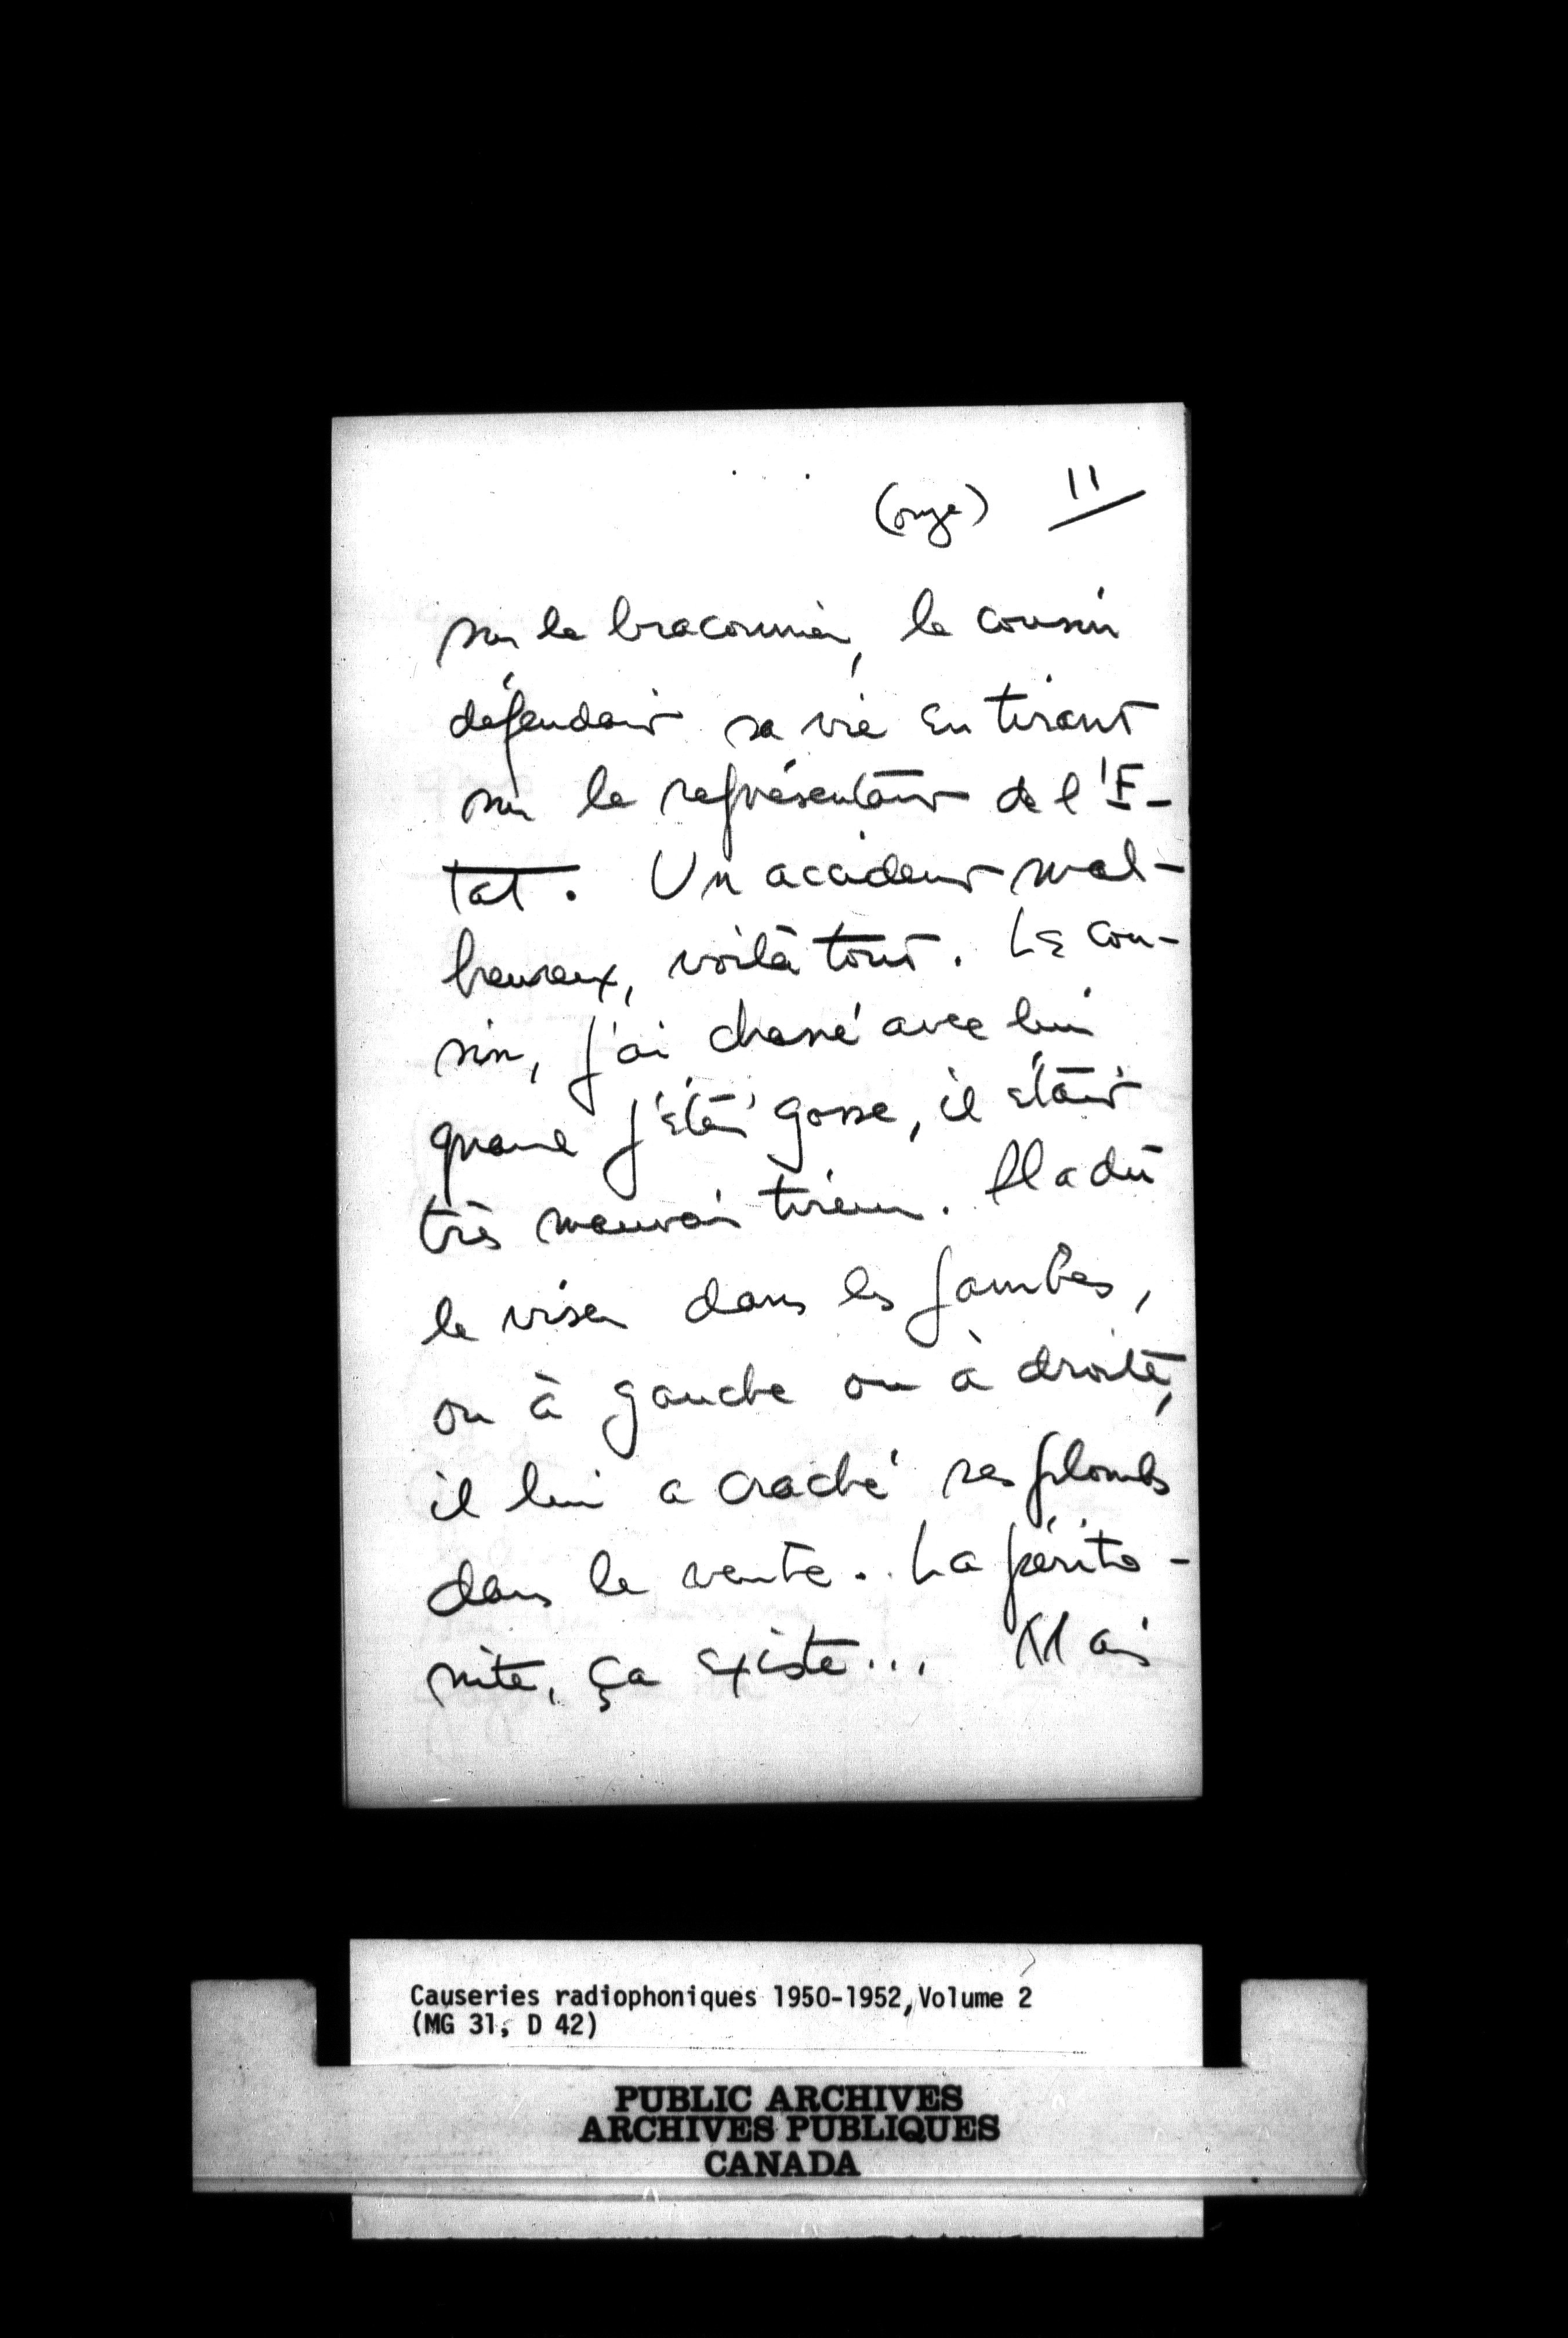 (onze) 11
sur le braconnier, le cousin
défendait sa vie en tirant
sur le représentant de l'E-
tat. Un accident mal-
heureux, voilà tout. Le cou-
sin, j'ai chassé avec lui
quand j'étais gosse, il était
très mauvais tireur. Il a dû
le viser dans les jambes,
ou à gauche ou à droite,
il lui a craché ses plombs
dans le ventre. La périto-
nite, ça existe... Mais
Causeries radiophoniques 1950-1952, Volume 2
(MG 31, D 42)
PUBLIC ARCHIVES
ARCHIVES PUBLIQUES
CANADA